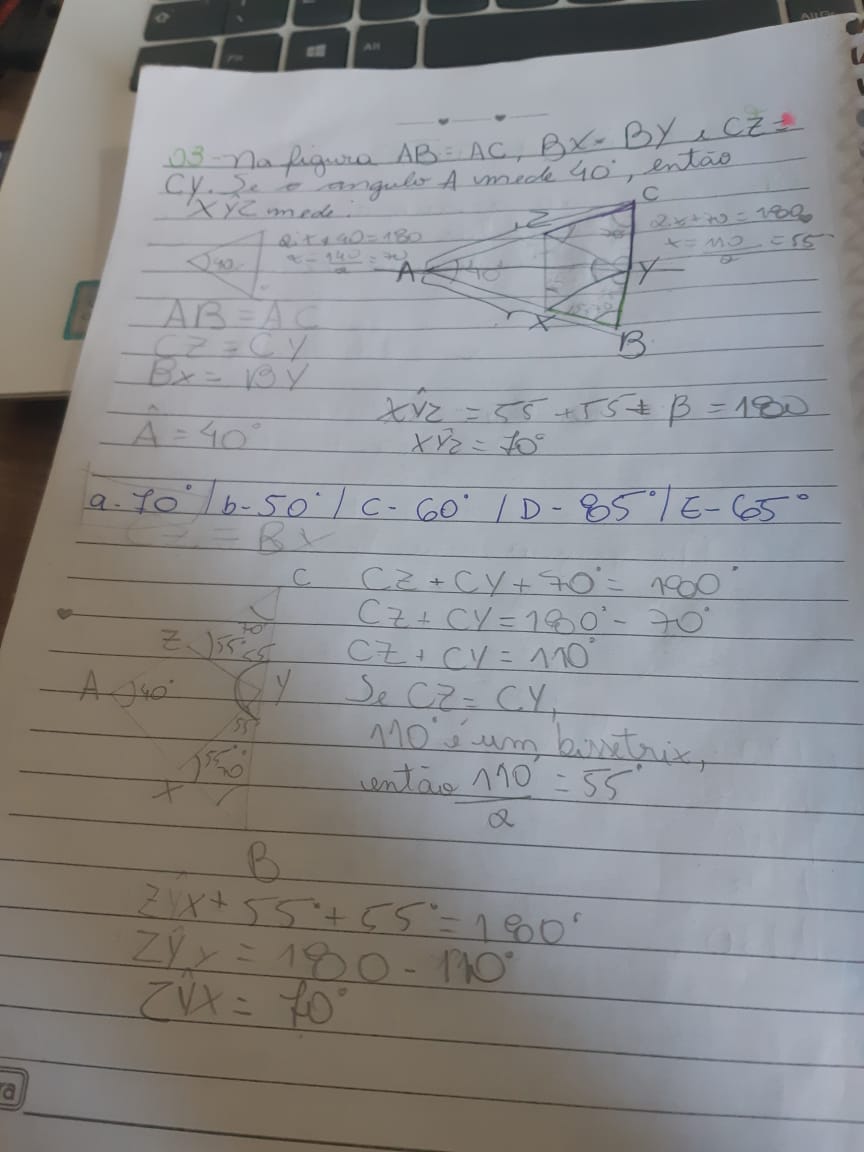 03- Na figura AB = AC, BX = BY e CZ =
CY. Se o angulo A mede 40°, então
XŶZ mede:
2x + 40 = 180
x = 140/2 = 70
40
A
40°
Z
C
Y
X
B
2x + 70 = 180
x = 110/2 = 55
AB = AC
CZ = CY
BX = BY
Â = 40°
XŶZ = 55 + 55 + β = 180
XŶZ = 70°
a- 70° / b- 50° / C- 60° / D- 85° / E- 65°
CZ = BX
C
Z
70°
55°
55
A
40°
Y
55°
X
B
CZ + CY + 70° = 180°
CZ + CY = 180° - 70°
CZ + CY = 110°
Se CZ = CY,
110° é um bissetrix,
então 110/2 = 55°
ZŶX + 55° + 55° = 180°
ZŶX = 180 - 110°
ZŶX = 70°
Alt